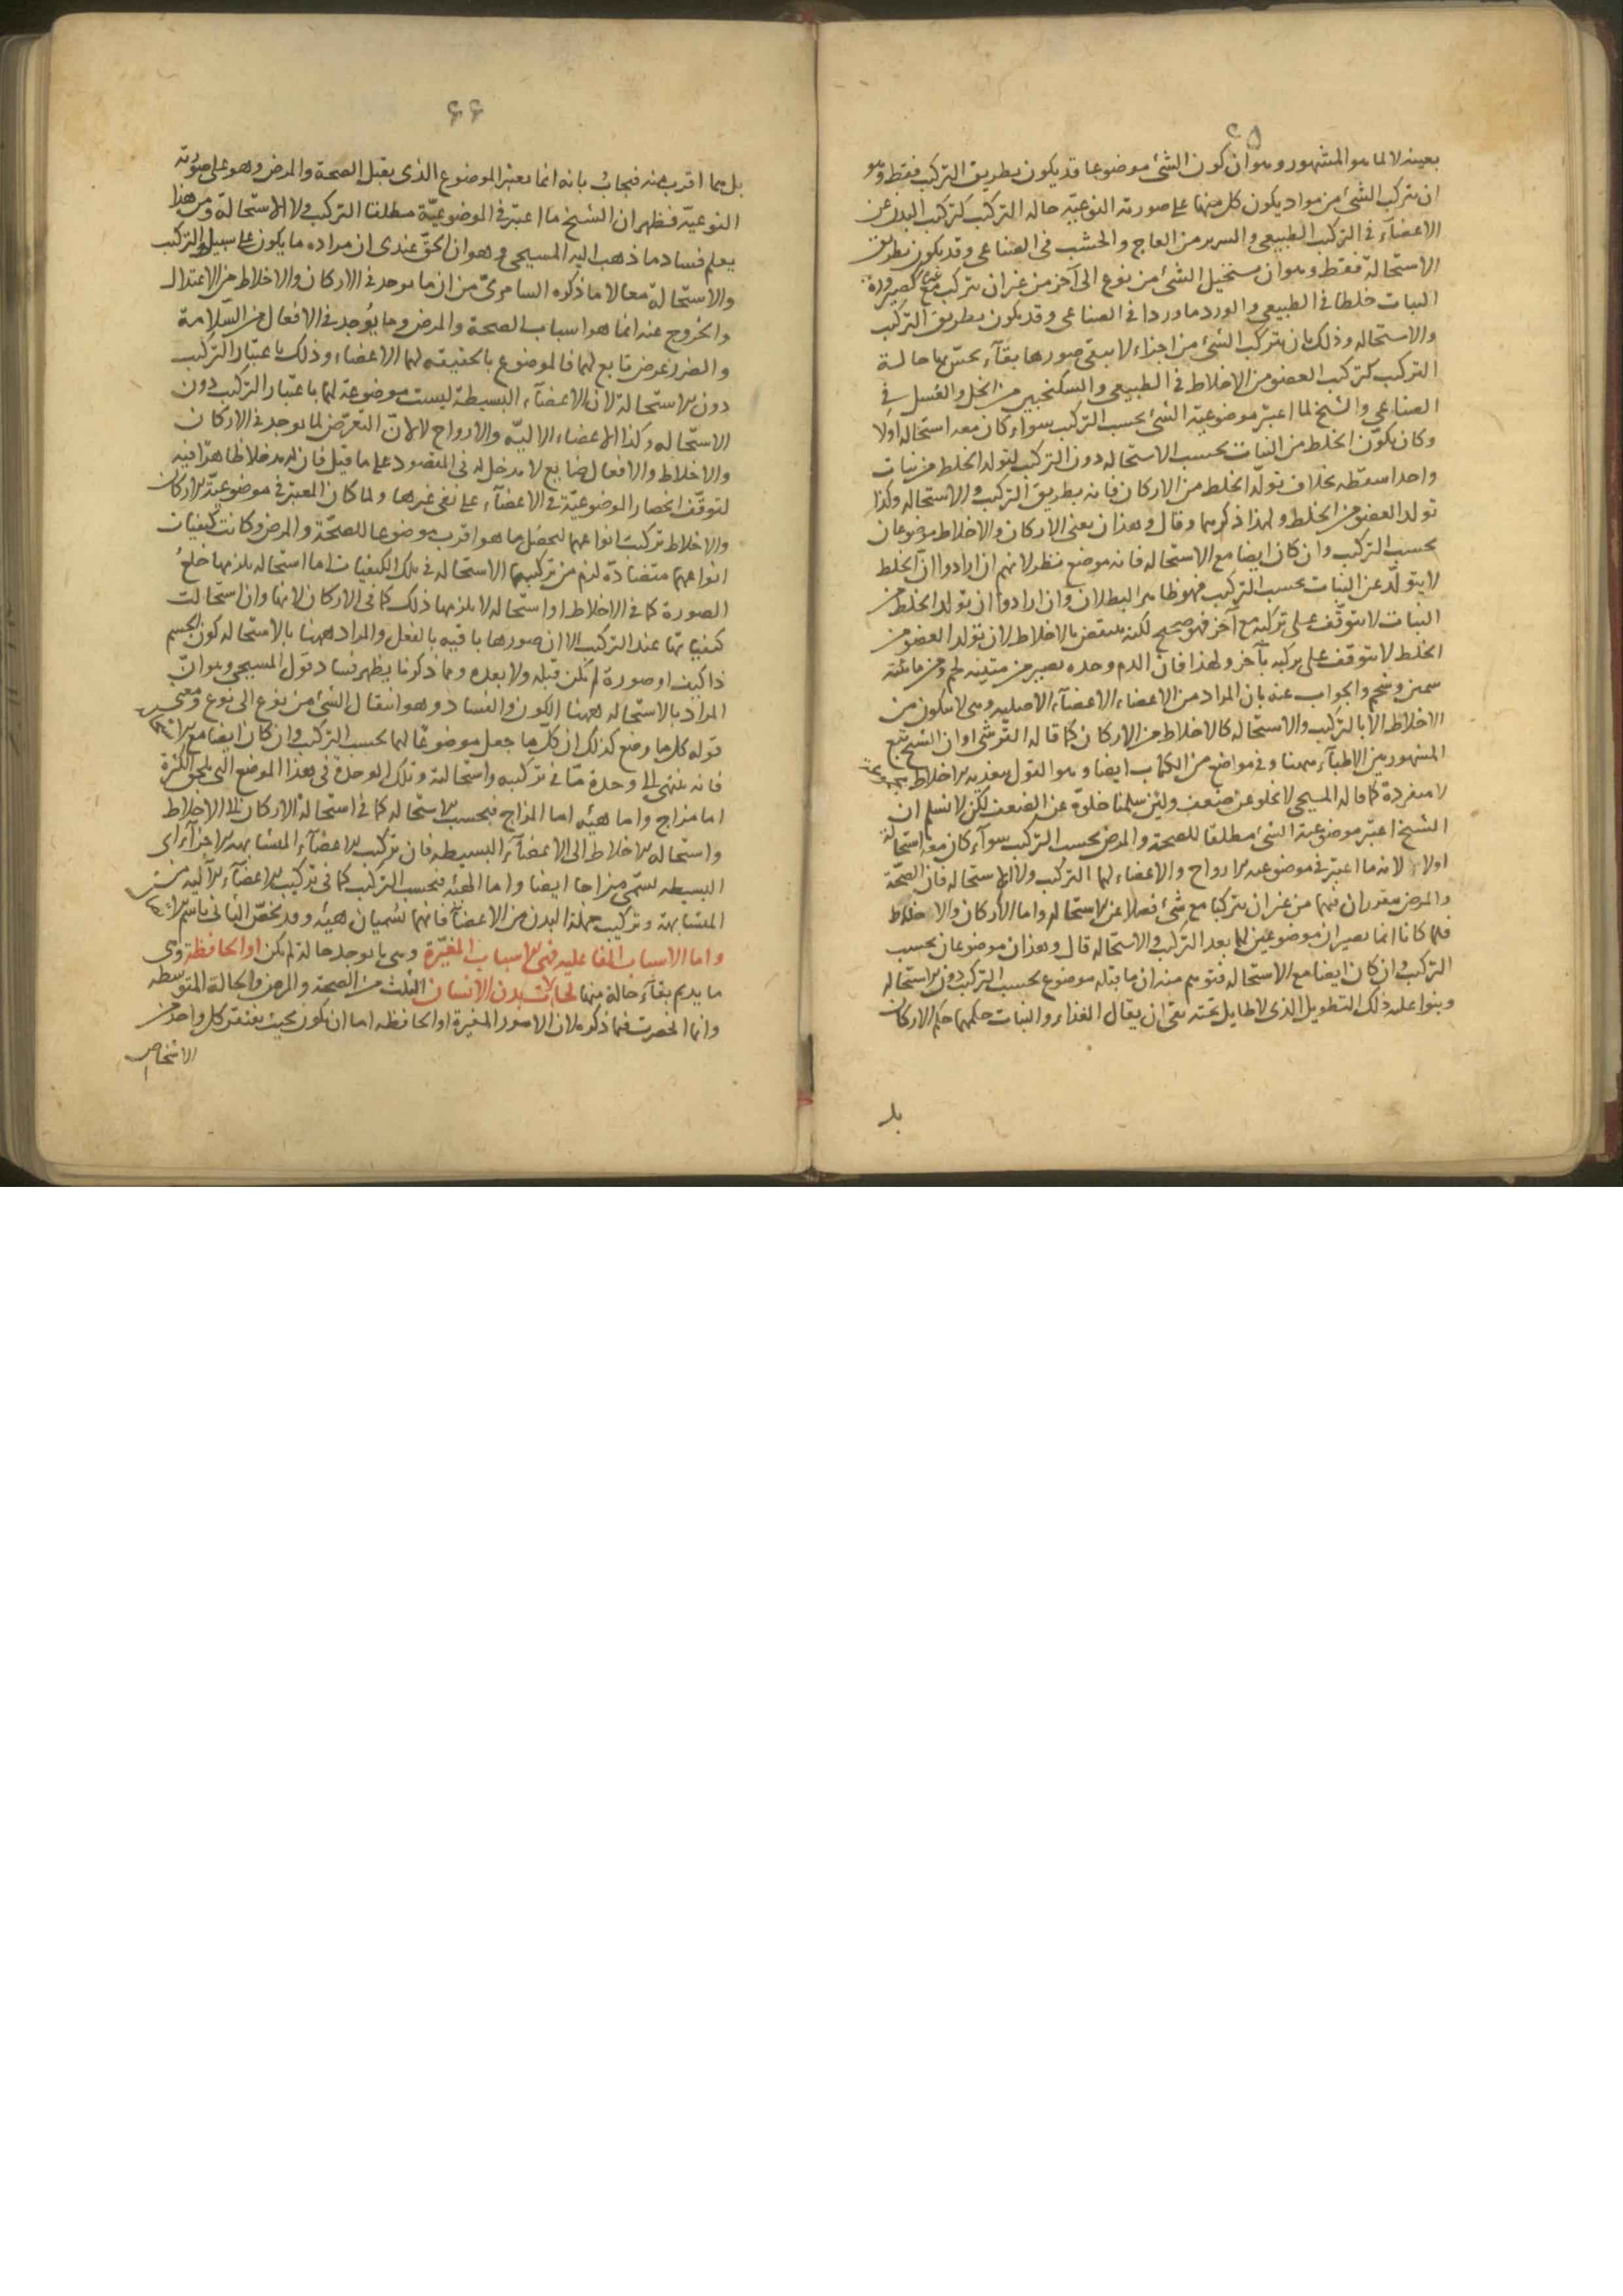 ٦٥
بعينه لا لما هو المشهور وهو ان كون الشئ موضوعا قد يكون بطريق التركيب فقط وهو
ان يتركب الشئ من مواد يكون كل منها على صورته النوعيّة حالة التركيب كتركب البدن عن
الاعضآء في التركيب الطبيعي والسرير من العاج والخشب في الصناعي وقد يكون بطريق
الاستحالة فقط وهو ان يستحيل الشئ من نوع الى آخر من غير ان يتركب مع غيره كصيرورة
النبات خلطا في الطبيعي والورد ماء ورد في الصناعي وقد يكون بطريق التركيب
والاستحاله وذلك بان يتركب الشئ من اجزاء لا يبقى صورها بقآء يحسّ بها حالة
التركيب كتركب العضو من الاخلاط في الطبيعي والسكنجبين من الخل والعسل في
الصناعي والشيخ لما اعتبر موضوعية الشئ بحسب التركيب سواء كان معه استحاله اولا
وكان تكوّن الخلط من النبات بحسب الاستحاله دون التركيب لتولد الخلط من نبات
واحد اسقطه بخلاف تولّد الخلط من الاركان فانه بطريق التركيب والاستحاله وكذا
تولد العضو من الخلط ولهذا ذكرهما وقال وهذان يعني الاركان والاخلاط موضوعان
بحسب التركيب وان كان ايضا مع الاستحاله فانه موضع نظر لانهم ان ارادوا انّ الخلط
لا يتولّد عن النبات بحسب التركيب فهو ظاهر البطلان وان ارادوا ان تولد الخلط من
النبات لا يتوقّف على تركبه مع آخر فهو صحيح لكنه منتقض بالاخلاط لان تولد العضو من
الخلط لا يتوقف على تركبه بآخر ولهذا فان الدم وحده يصير من متينه لحم ومن مائيته
سمين وشحم والجواب عنه بان المراد من الاعضاء الاعضآء الاصلية وهى لا تتكون من
الاخلاط الا بالتركيب والاستحاله كالاخلاط من الاركان كما قاله القرشى او ان الشيخ تبع
المشهور بين الاطبآء ههنا وفي مواضع من الكتاب ايضا وهو القول بتغذيه الاخلاط
لا منفردة كما قاله المسيحى لا يخلو عن ضعف ولئن سلمنا خلوّه عن الضعف لكن لا نسلم ان
الشيخ اعتبر موضوعية الشئ مطلقا للصحة والمرض بحسب التركيب سوآء كان معه استحالة
اولا لانه ما اعتبر في موضوعيه الارواح والاعضاء لهما التركيب ولا الاستحاله فان الصحّة
والمرض مقدران فيهما من غير ان يتركبا مع شئ فضلا عن الاستحاله واما الاركان والاخلاط
فلما كانا انما يصيران موضوعين لهما بعد التركيب والاستحاله قال وهذان موضوعان بحسب
التركيب وان كان ايضا مع الاستحاله فتوهم منه ان ما قبله موضوع بحسب التركيب دون الاستحاله
وبنوا عليه ذلك التطويل الذى لا طايل تحته بقى ان يقال الغذاء والنبات حكمهما حكم الاركان
بل
٦٦
بل هما اقرب منه فيجاب بانه انما يعتبر الموضوع الذى يقبل الصحة والمرض وهو على صورته
النوعيّة فظهر ان الشيخ ما اعتبر في الموضوعيّة مطلقا التركيب ولا الاستحالة ومن هذا
يعلم فساد ما ذهب اليه المسيحى وهو ان الحقّ عندى ان مراده ما يكون على سبيل التركيب
والاستحالة معا لا ما ذكره السامرىّ من ان ما يوجد في الاركان والاخلاط من الاعتدال
والخروج عنه انما هو اسباب الصحة والمرض وما يوجد في الافعال من السّلامة
والضرر عرض تابع لهما فالموضوع بالحقيقه لهما الاعضاء وذلك باعتبار التركيب
دون الاستحالة لان الاعضآء البسيطة ليست موضوعة لهما باعتبار التركيب دون
الاستحاله وكذا الاعضاء الاليّه والارواح لا لانّ التعرّض لما يوجد في الاركان
والاخلاط والافعال ضايع لا مدخل له في المقصود على ما قيل فان له مدخلا ظاهرا فيه
لتوقّف انحصار الموضوعيّة في الاعضآء على نفى غيرها ولما كان المعتبر في موضوعيّة الاركان
والاخلاط تركيب انواعهما ليحصل ما هو اقرب موضوعا للصحّة والمرض وكانت كيفيات
انواعهما متضادّة لزم من تركيبهما الاستحاله في تلك الكيفيات اما استحاله يلزمها خلع
الصورة كما في الاخلاط او استحاله لا يلزمها ذلك كما في الاركان لانها وان استحالت
كيفياتها عند التركيب الا ان صورها باقيه بالفعل والمراد ههنا بالاستحاله كون الجسم
ذا كيف او صورة لم يكن قبله ولا بعده ومما ذكرنا يظهر فساد قول المسيحى وهو انّ
المراد بالاستحاله ههنا الكون والفساد وهو انتقال الشئ من نوع الى نوع ومعنى
قوله كل ما وضع كذلك ان كل ما جعل موضوعا لهما بحسب التركيب وان كان ايضا مع الاستحاله
فانه ينتهى الى وحدة مّا في تركيبه واستحالته وتلك الوحدة في هذا الموضع التى تلحق الكثرة
اما مزاج واما هيئه اما المزاج فبحسب الاستحاله كما في استحالة الاركان الى الاخلاط
واستحاله الاخلاط الى الاعضآء البسيطه فان تركيب الاعضآء المتشابهه الاجزآء اى
البسيطه يسمّى مزاجا ايضا واما الهيئه فبحسب التركيب كما في تركيب الاعضآء الآليه من
المتشابهة وتركيب جملة البدن من الاعضآء فانهما تسميان هيئه وقد يخصّ الثانى باسم
واما الاسباب الفاعليه فهى الاسباب المغيّرة وهى ما يوجد حالة لم يكن او الحافظة وهى
ما يديم بقآء حالة منها لحالات بدن الانسان الثلث من الصحة والمرض والحالة المتوسطه
وانما انحصرت فيما ذكره لان الامور المغيرة او الحافظه اما ان يكون بحيث يفتقر كل واحد من
الاشخاص